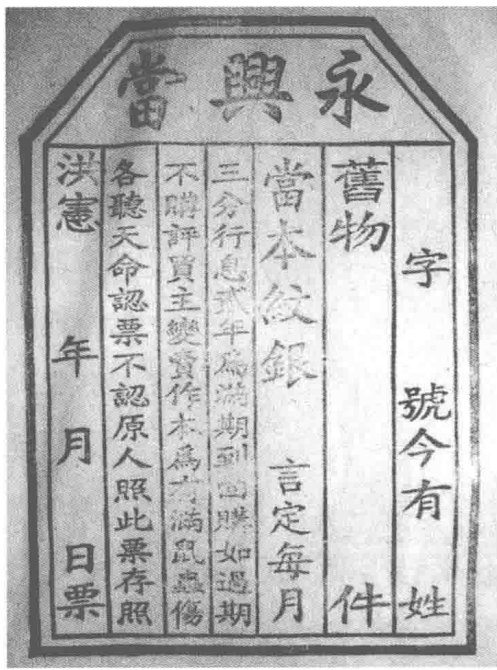 永興當
字 號今有 姓
舊物 件
當本紋銀 言定每月
三分行息貳年爲滿期到回購如過期
不購評買主變賣作本爲有滿鼠蟲傷
各聽天命認票不認原人照此票存照
洪憲 年 月 日票